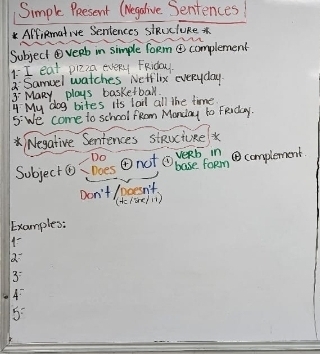 Simple Present (Negative Sentences)
* Affirmative Sentences structure *
Subject + verb in simple form + complement
1- I eat pizza every Friday.
2- Samuel watches Netflix everyday.
3- Mary plays basketball.
4- My dog bites its tail all the time.
5- We come to school from Monday to Friday.
* Negative Sentences structure *
Subject + Do Does + not + verb in base form + complement.
Don't / Doesn't
(He/She/it)
Examples:
1-
2-
3-
4-
5-